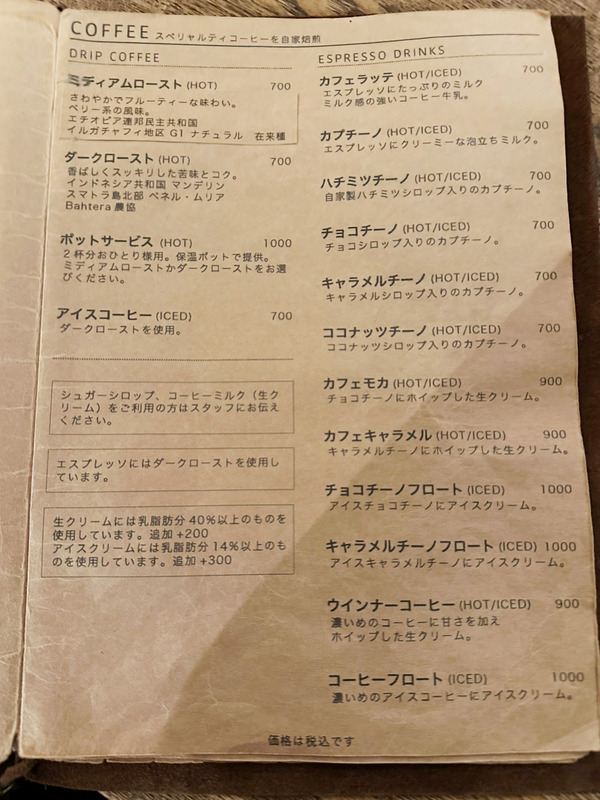 COFFEE スペシャルティコーヒーを自家焙煎
DRIP COFFEE
ミディアムロースト (HOT) 700
さわやかでフルーティーな味わい。
ベリー系の風味。
エチオピア連邦民主共和国
イルガチャフィ地区 G1 ナチュラル 在来種
ダークロースト (HOT) 700
香ばしくスッキリした苦味とコク。
インドネシア共和国 マンデリン
スマトラ島北部 ベネル・ムリア
Bahtera 農協
ポットサービス (HOT) 1000
2杯分おひとり様用。保温ポットで提供。
ミディアムローストかダークローストをお選
びください。
アイスコーヒー (ICED) 700
ダークローストを使用。
シュガーシロップ、コーヒーミルク（生ク
リーム）をご利用の方はスタッフにお伝え
ください。
エスプレッソにはダークローストを使用し
ています。
生クリームには乳脂肪分 40%以上のものを
使用しています。追加 +200
アイスクリームには乳脂肪分 14%以上のも
のを使用しています。追加 +300
ESPRESSO DRINKS
カフェラッテ (HOT/ICED) 700
エスプレッソにたっぷりのミルク
ミルク感の強いコーヒー牛乳。
カプチーノ (HOT/ICED) 700
エスプレッソにクリーミーな泡立ちミルク。
ハチミツチーノ (HOT/ICED) 700
自家製ハチミツシロップ入りのカプチーノ。
チョコチーノ (HOT/ICED) 700
チョコシロップ入りのカプチーノ。
キャラメルチーノ (HOT/ICED) 700
キャラメルシロップ入りのカプチーノ。
ココナッツチーノ (HOT/ICED) 700
ココナッツシロップ入りのカプチーノ。
カフェモカ (HOT/ICED) 900
チョコチーノにホイップした生クリーム。
カフェキャラメル (HOT/ICED) 900
キャラメルチーノにホイップした生クリーム。
チョコチーノフロート (ICED) 1000
アイスチョコチーノにアイスクリーム。
キャラメルチーノフロート (ICED) 1000
アイスキャラメルチーノにアイスクリーム。
ウインナーコーヒー (HOT/ICED) 900
濃いめのコーヒーに甘さを加え
ホイップした生クリーム。
コーヒーフロート (ICED) 1000
濃いめのアイスコーヒーにアイスクリーム。
価格は税込です